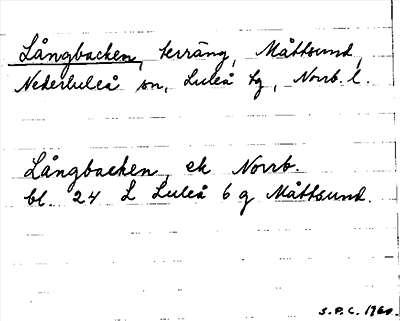 Långbacken, terräng, Måttsund,
Nederluleå sn, Luleå tg, Norrb. l.
Långbacken, ek Norrb.
bl. 24 L Luleå 6 g Måttsund.
S.P.C. 1960.